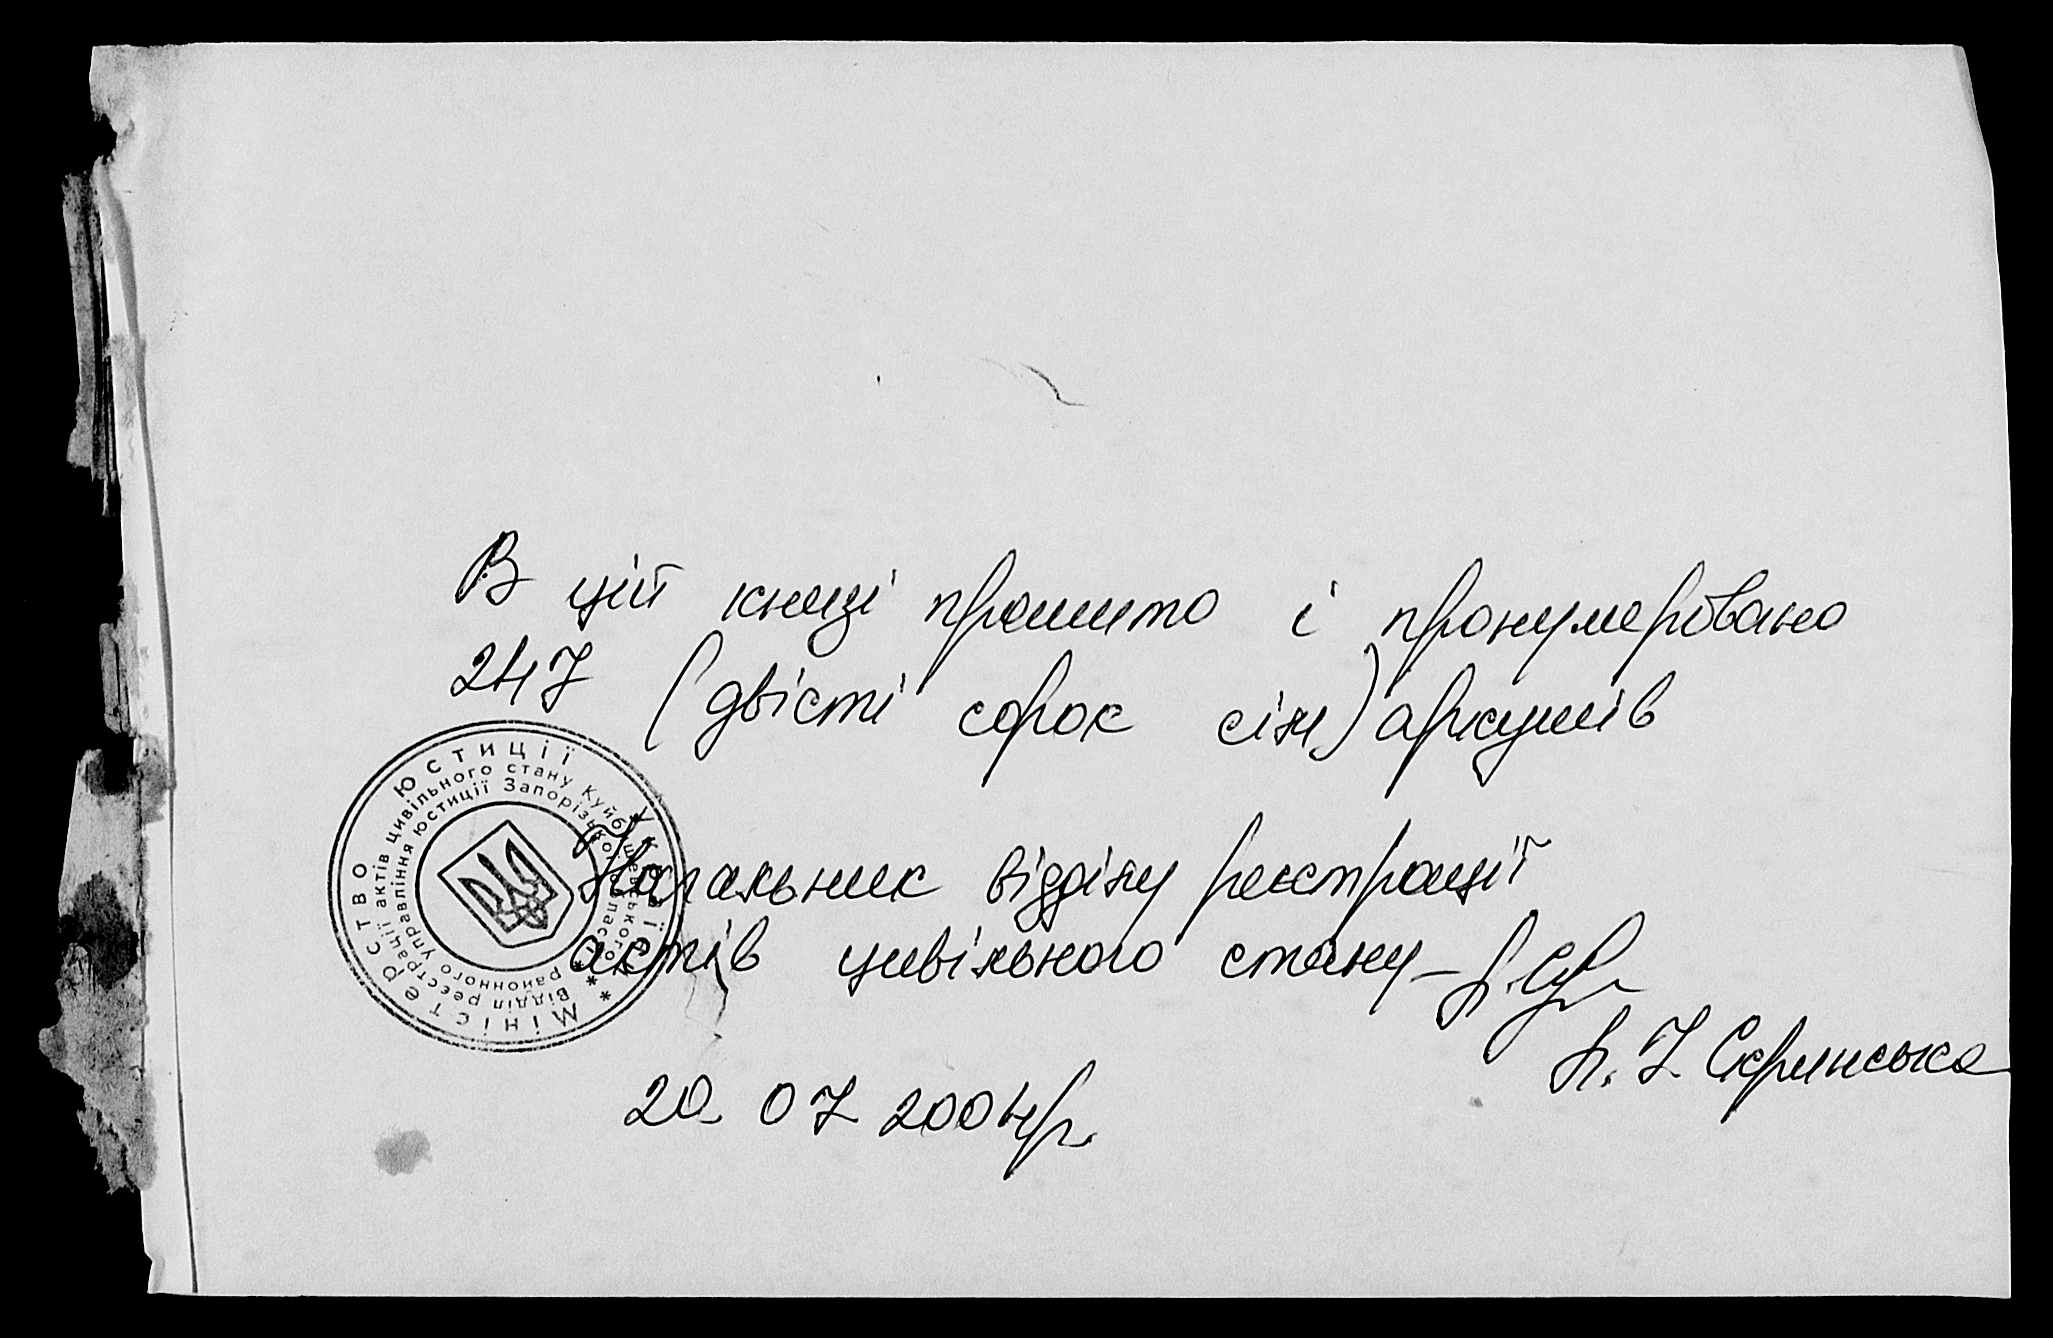 В цій книзі прошито і пронумеровано
247 (двісті сорок сім) аркушів
Міністерство юстиції України
Відділ реєстрації актів цивільного стану Куйбишевського
районного управління юстиції Запорізької області
Начальник відділу реєстрації
актів цивільного стану –
Л. І. Скринська
20 07 2004р.